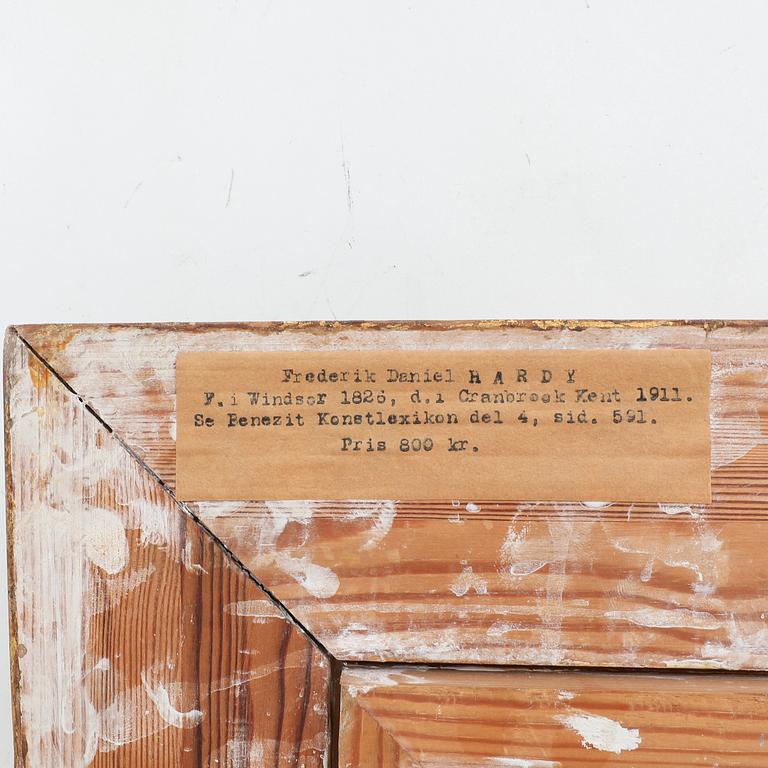 Frederik Daniel H A R D Y
F.i Windsor 1826, d.i Cranbrook Kent 1911.
Se Benezit Konstlexikon del 4, sid. 591.
Pris 800 kr.